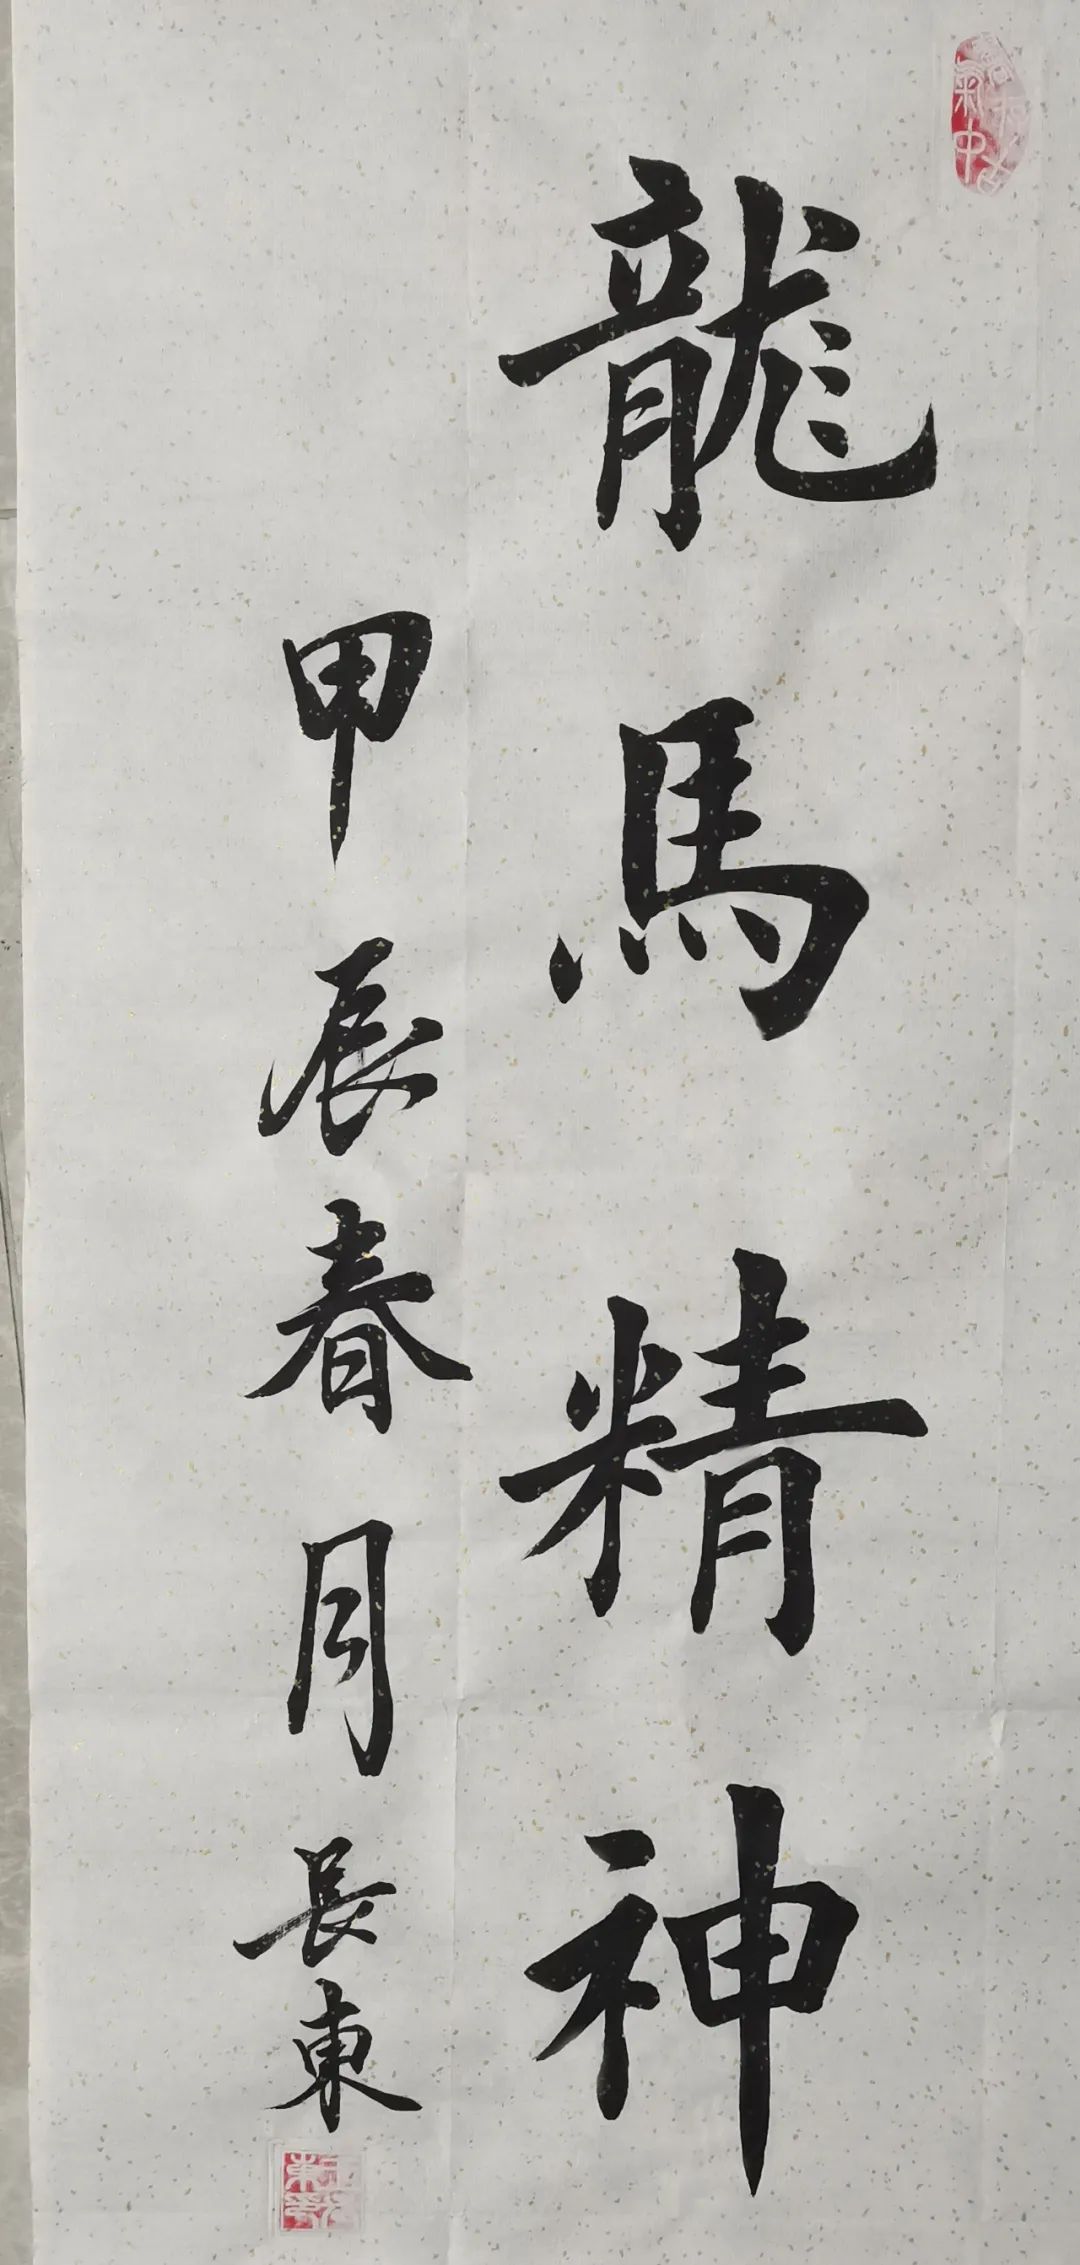 龍馬精神
甲辰春月長東